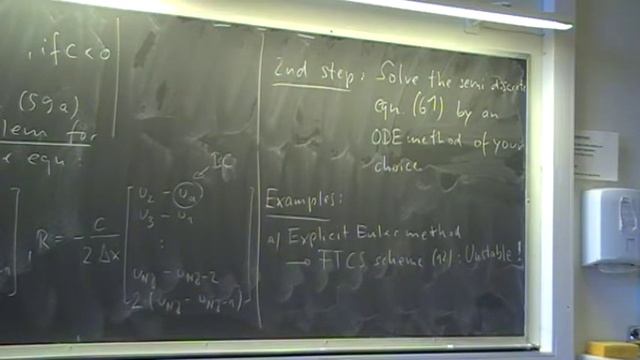 , if c < 0
(59a)
lem for
eqn:
R = - c / 2 Δx
BC
u_2 - u_a
u_3 - u_1
⋮
u_Nξ - u_Nξ-2
2 (u_Nξ - u_Nξ-1)
2nd step: Solve the semi discrete
eqn. (61) by an
ODE method of your
choice
Examples:
a) Explicit Euler method
→ FTCS scheme (12): Unstable!